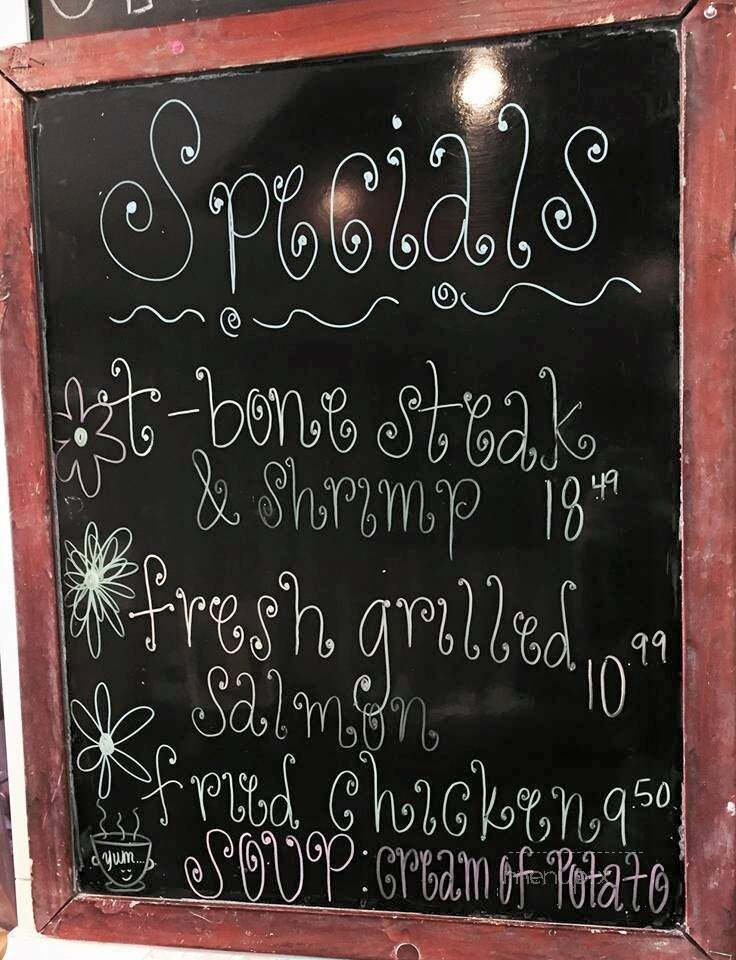 Specials
t-bone steak
& shrimp 18.49
fresh grilled
salmon 10.99
fried chicken 9.50
yum...
SOUP: Cream of Potato